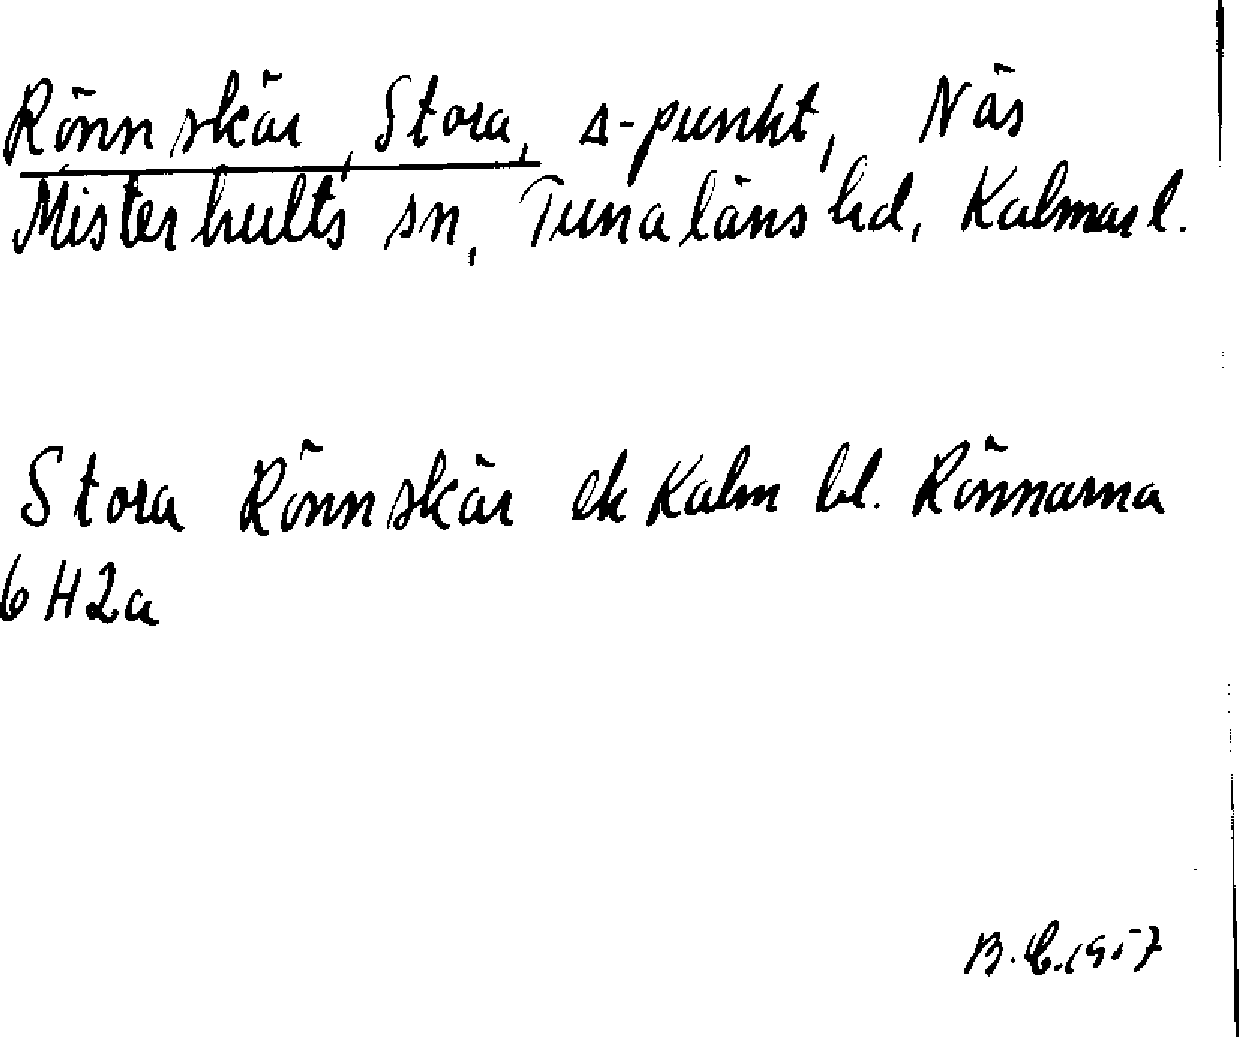 Rönnskär, Stora, Δ-punkt, Näs
Misterhults sn, Tunaläns hd, Kalmar l.
Stora Rönnskär ek Kalm bl. Rönnarna
6H2a
B.E.1957